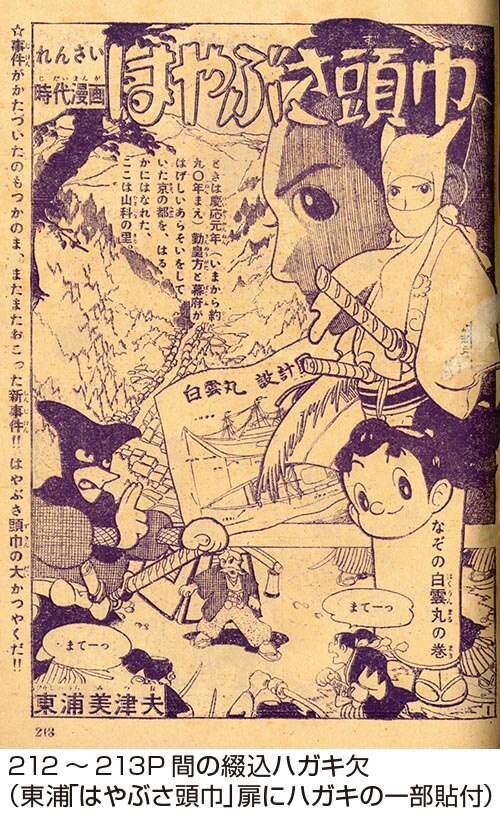 ☆事件がかたづいたのもつかのま、またまたおこった新事件!! はやぶさ頭巾の大かつやくだ!!
れんさい
時代漫画
じだいまんが
はやぶさ頭巾
ときは慶応元年(いまから約
九〇年まえ)勤皇方と幕府が
はげしいあらそいをして
いた京の都を、はる
かにはなれた、
ここは山科の里
白雲丸 設計
なぞの白雲丸の巻
はくうんまる
まき
まてーっ
まてーっ
東浦美津夫
213
212 ~ 213P 間の綴込ハガキ欠
(東浦「はやぶさ頭巾」扉にハガキの一部貼付)